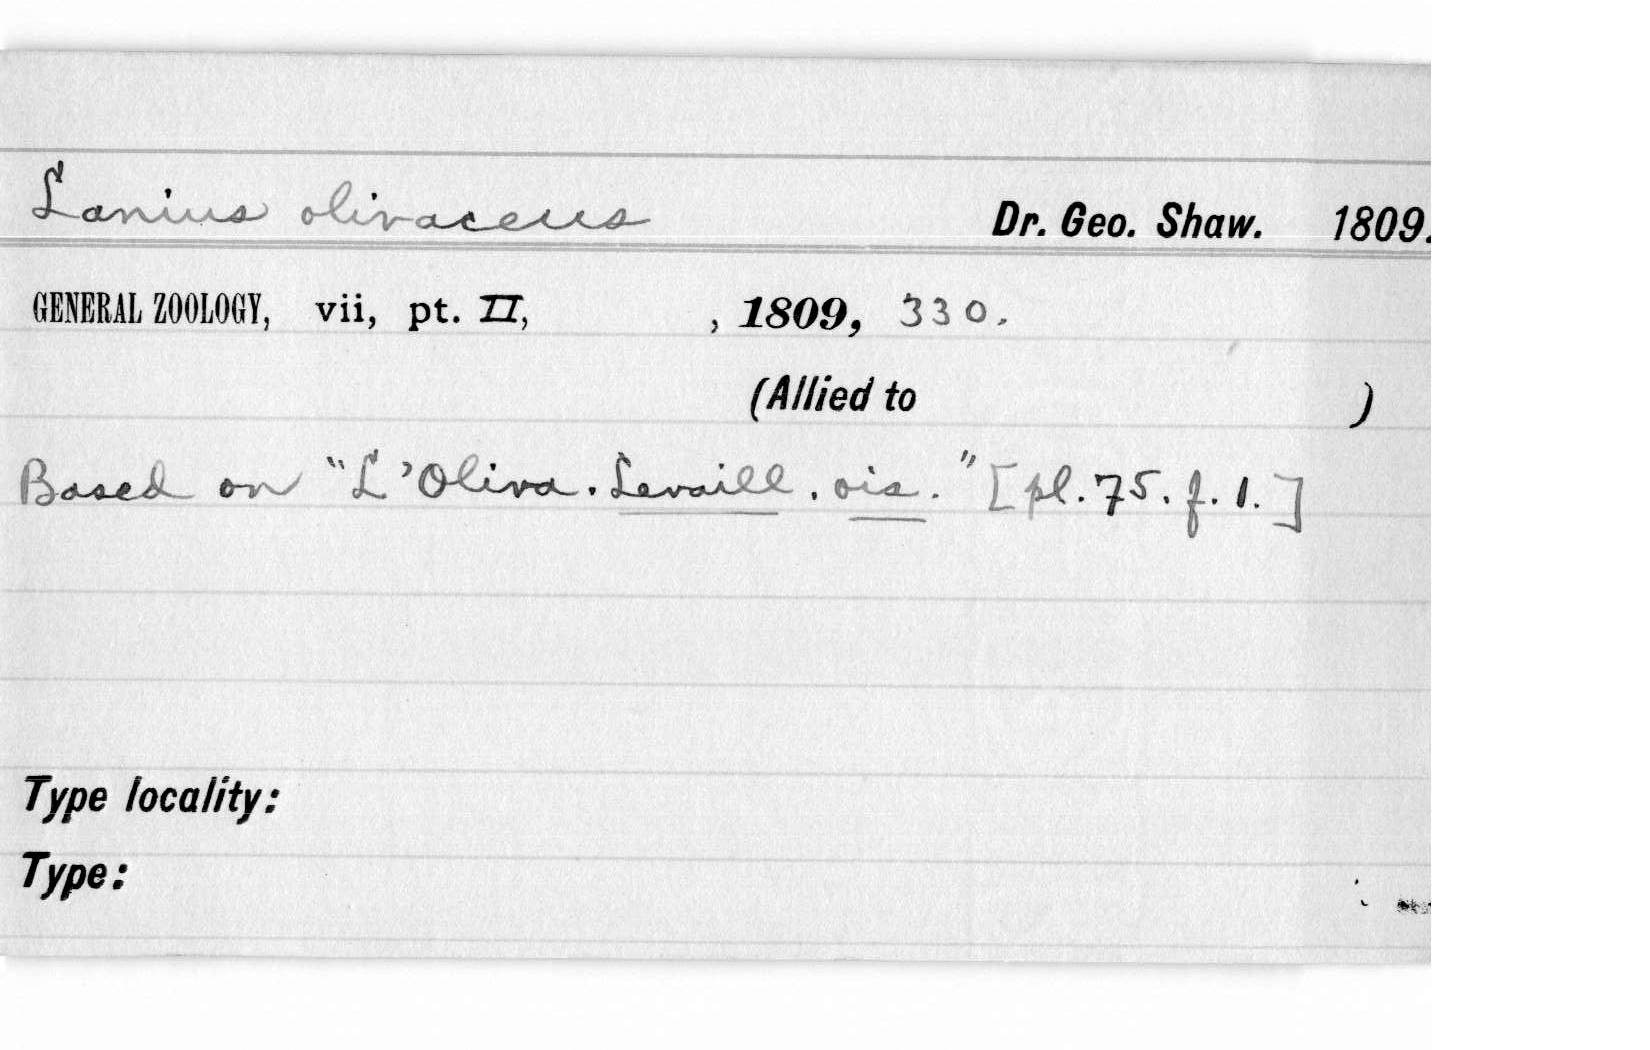 Lanius olivaceus Dr. Geo. Shaw. 1809.
GENERAL ZOOLOGY, vii, pt. II, , 1809, 330.
(Allied to )
Based on "L'Oliva. Levaill. ois." [pl. 75. f. 1.]
Type locality:
Type: